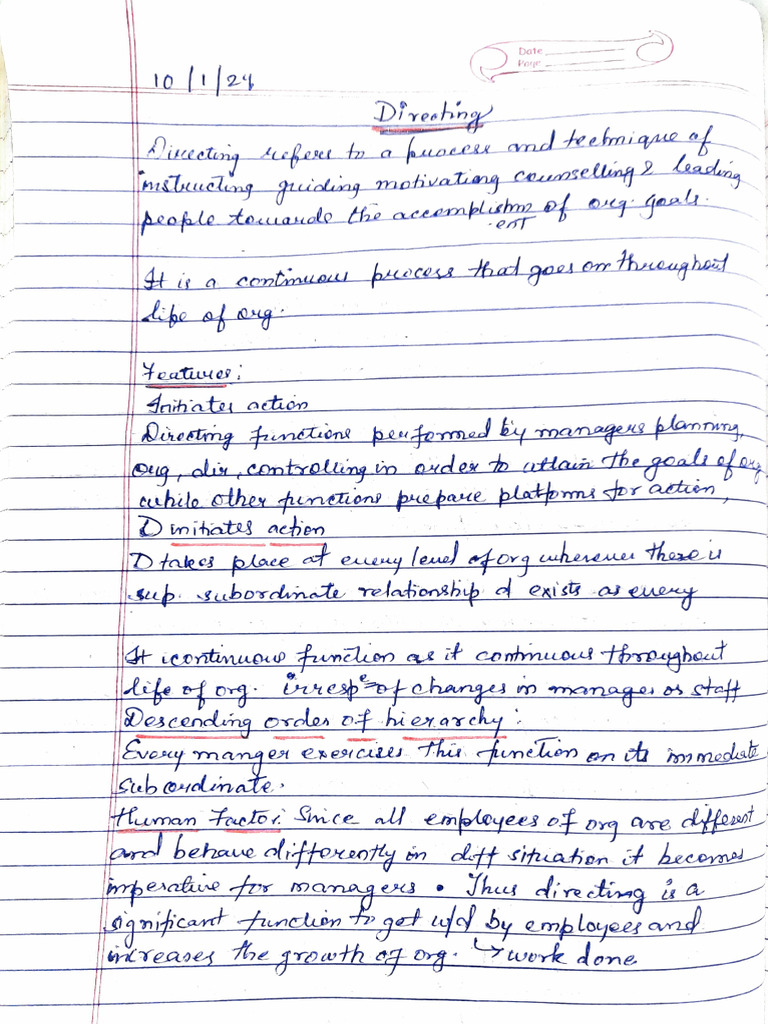 Date
Page
10/1/24
Directing
Directing refers to a process and technique of
instructing guiding motivating counselling & leading
people towards the accomplishm of org. goals.
ent
It is a continuous process that goes on throughout
life of org.
Features:
Initiates action
Directing functions performed by managers planning,
org, dir, controlling in order to attain the goals of org
while other functions prepare platforms for action,
D initiates action
D takes place at every level of org wherever there is
sup. subordinate relationship d exists as every
It is continuous function as it continuous throughout
life of org. irrespe of changes in manages or staff
Descending order of hierarchy:
Every manger exercises this function on its immediate
subordinate.
Human Factor: Since all employees of org are different
and behave differently in diff situation it becomes
imperative for managers. Thus directing is a
significant function to get w/d by employees and
increases the growth of org. ↳ work done